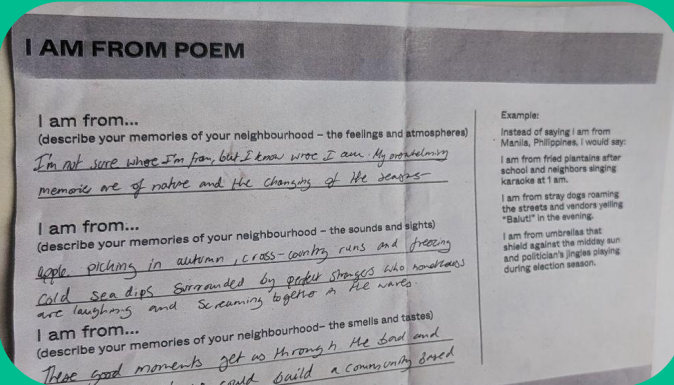 I AM FROM POEM
I am from...
(describe your memories of your neighbourhood – the feelings and atmospheres)
I'm not sure where I'm from, but I know wroe I am. My overwhelming
memories are of nature and the changing of the seasons
I am from...
(describe your memories of your neighbourhood – the sounds and sights)
apple picking in autumn, cross-country runs and freezing
cold sea dips surrounded by perfect strangers who nonetheless
are laughing and screaming together in the waves.
I am from...
(describe your memories of your neighbourhood– the smells and tastes)
These good moments get us through the bad and
could build a community based
Example:
Instead of saying I am from
Manila, Philippines, I would say:
I am from fried plantains after
school and neighbors singing
karaoke at 1 am.
I am from stray dogs roaming
the streets and vendors yelling
"Balut!" in the evening.
I am from umbrellas that
shield against the midday sun
and politician's jingles playing
during election season.